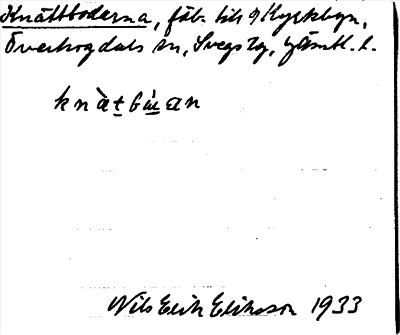 Knättboderna, fäb. till Kyrkbyn,
Överhogdals sn, Svegs tg, Jämtl. l.
knàt bù an
Nils Erik Eliksson 1933